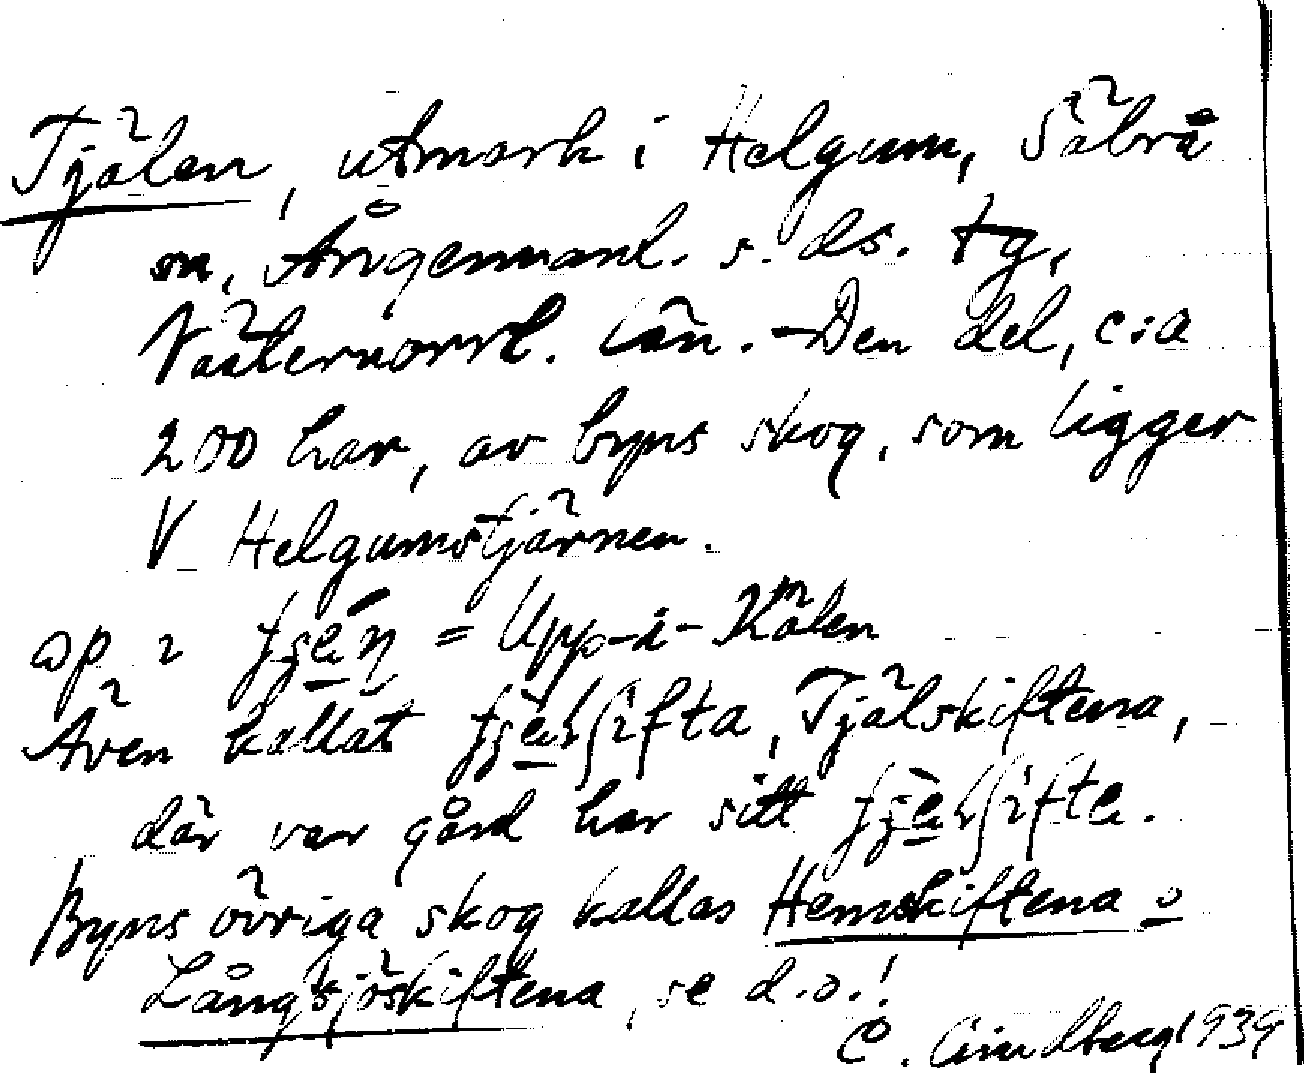 Tjälen, utmark i Helgum, Säbrå
sn, Ångermanl. s. ds. tg,
Västernorrl. län. - Den del, c:a
200 har, av byns skog, som ligger
V Helgumstjärnen.
= Upp-i-Kälen
Även kallat Tjälskiftena,
där var gård har sitt
Byns övriga skog kallas Hemskiftena o
Långsjöskiftena, se d.o.!
C. Lindberg 1939